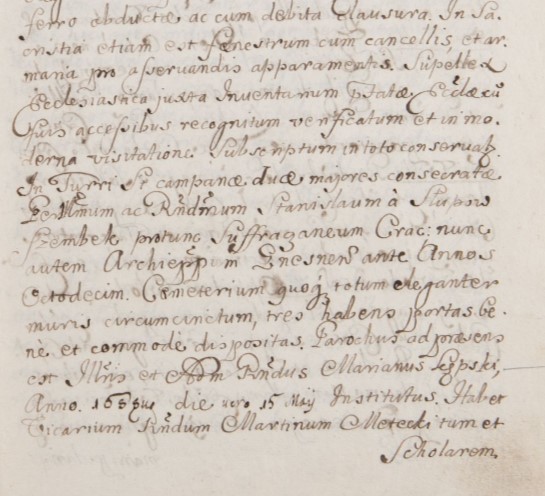 ferro obductæ ac cum debita Clausura. In Sa-
cristia etiam est fenestrum cum cancellis, et ar-
maria pro asservandis apparamentis. Supellex
Ecclesiastica juxta Inventarium ptatæ Ecclæ cũ
suis accessibus recognitum verificatum et in mo-
derna visitatione Subscriptum in toto conservatr.
In Turri st campanæ duæ majores consecratæ
Per Illmum ac Rndmum Stanislaum à Slupow
Szembek protunc Suffraganeum Crac: nunc
autem Archieppum Gnesnen ante Annos
Octodecim. Cæmeterium quoq totum eleganter
muris circumcinctum, tres habens portas be-
nè et commodè dispositas. Parochus ad præsens
est Illris et Adm Rndus Marianus Lepski,
Anno. die vero 15 Maij Institutus. Habet
Vicarium Rndum Martinum Metecki tum et
Scholarem,